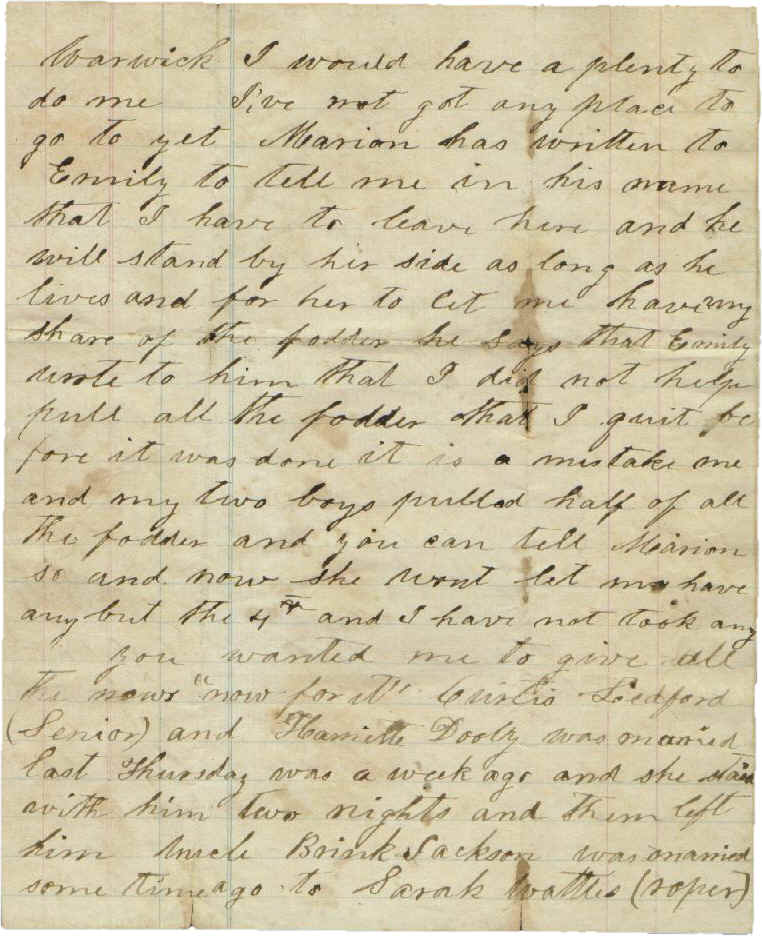 Warwick I would have a plenty to
do me I,ve not got any place to
go to yet Marion has written to
Emily to tell me in his name
that I have to leave here and he
will stand by her side as long as he
lives and for her to let me have my
share of the fodder he says that Emily
wrote to him that I did not help
pull all the fodder that I quit be
fore it was done it is a mistake me
and my two boys pulled half of all
the fodder and you can tell Marion
so and now she wont let me have
any but the 4th and I have not took any
you wanted me to give all
the news "now for it" Curtis Ledford
(Senior) and Harriette Dooly was married
last Thursday was a week ago and she staid
with him two nights and them left
him Uncle Brink Jackson was married
some time ago to Sarah Wattles (roper)